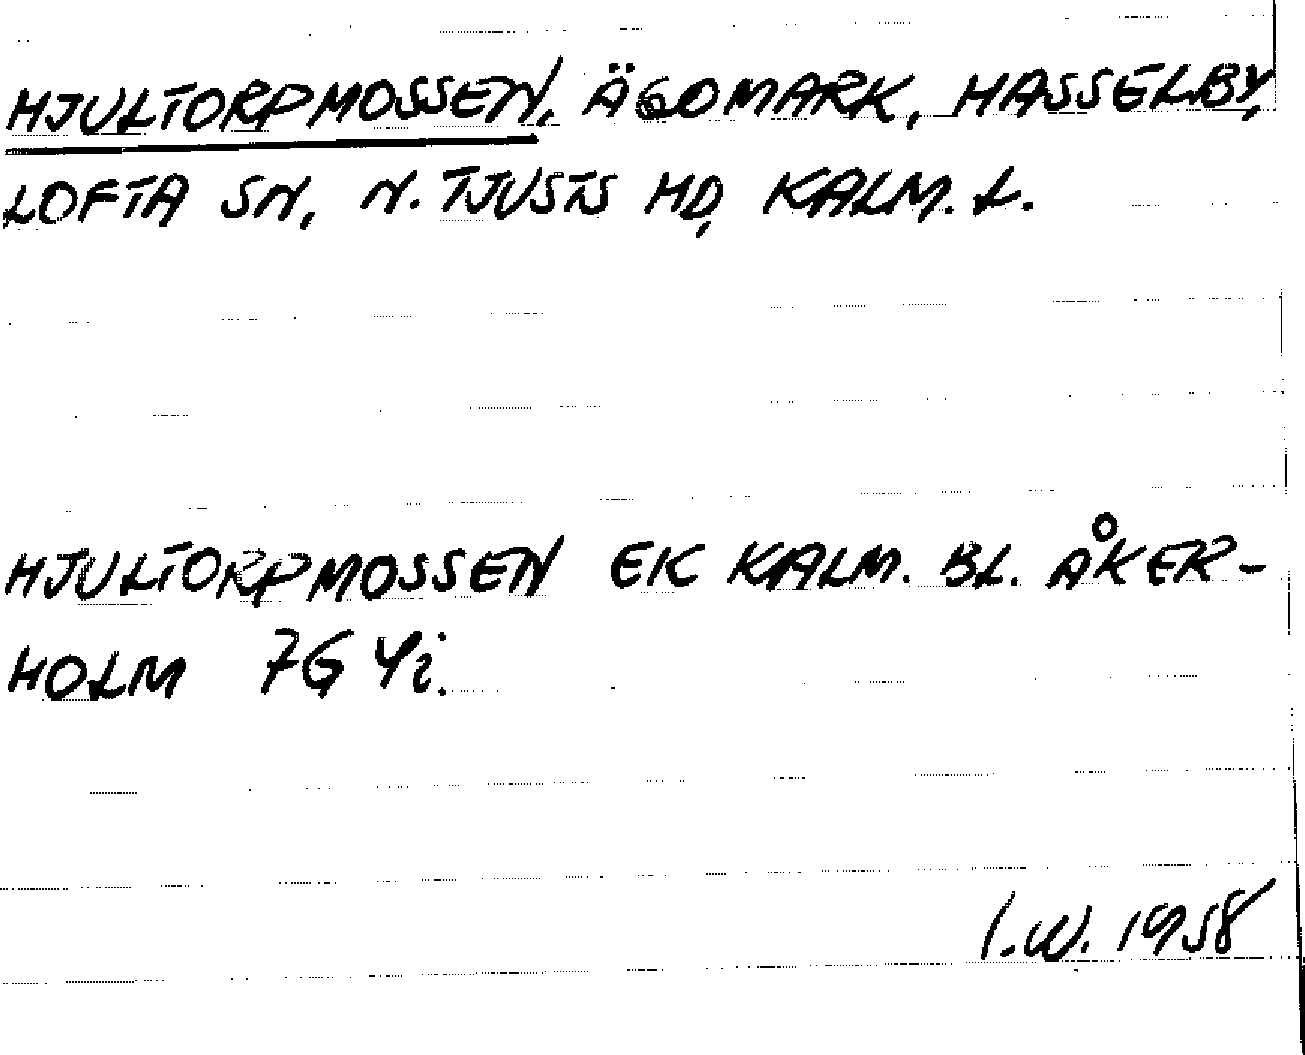 HJULTORPMOSSEN, ÄGOMARK, HASSELBY,
LOFTA SN, N. TJUSTS HD, KALM. L.
HJULTORPMOSSEN EK KALM. BL. ÅKER-
HOLM 7G 4i.
I.W. 1958